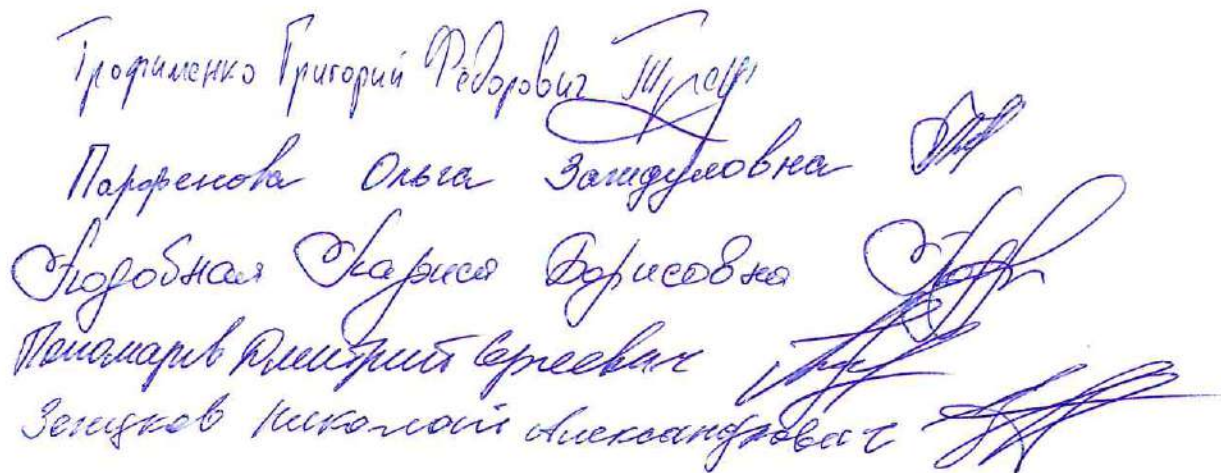 Трофименко Григорий Федорович
Парфенова Ольга Загидуловна
Подобная Лариса Борисовна
Пономарев Дмитрий Сергеевич
Николай Александрович